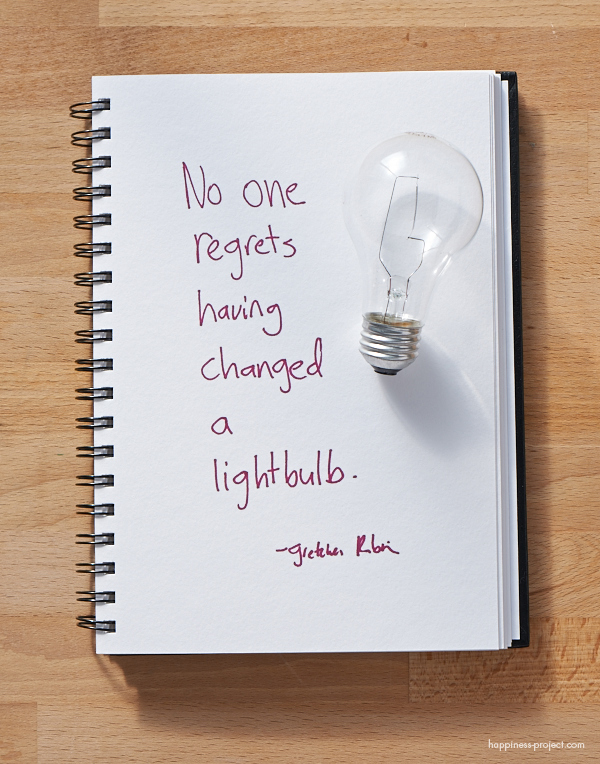 No one
regrets
having
changed
a
lightbulb.
-Gretchen Rubin
happiness-project.com